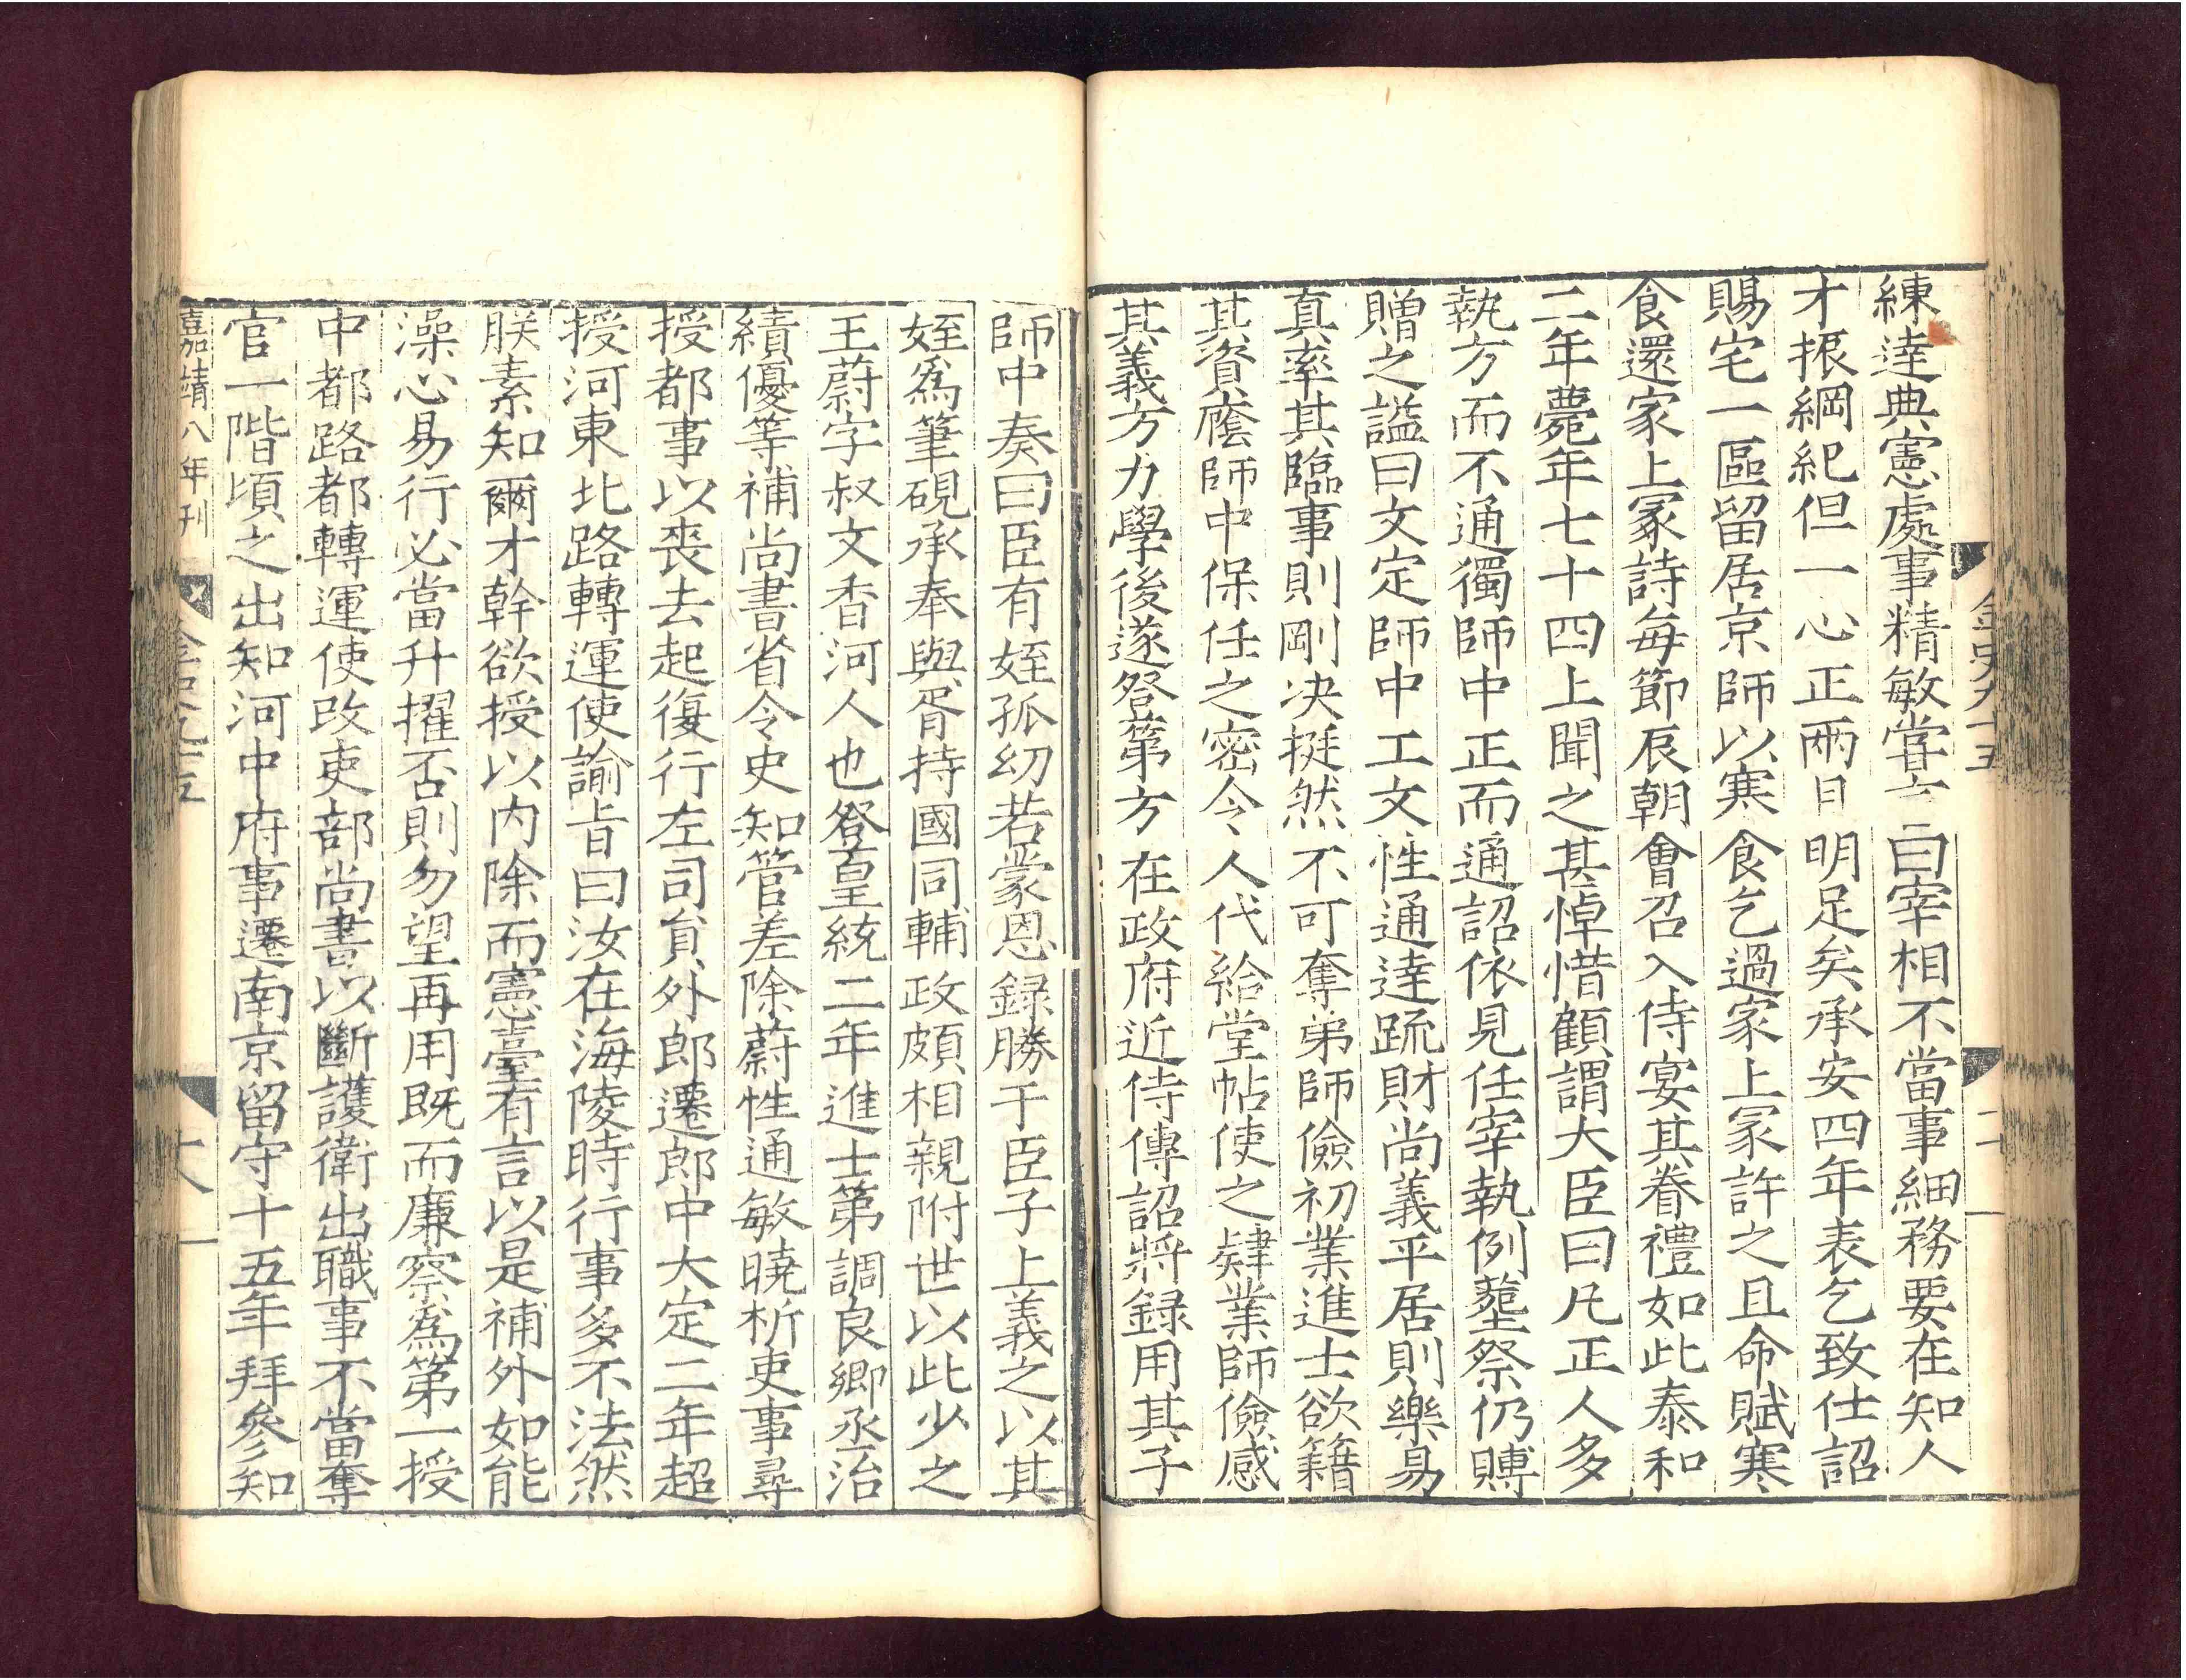 練達典憲處事精敏嘗言曰宰相不當事細務要在知人
才振綱紀但一心正兩目明足矣承安四年表乞致仕詔
賜宅一區留居京師以寒食乞過家上冢許之且命賦寒
食還家上冢詩每節辰朝會召入侍宴其眷禮如此泰和
二年薨年七十四上聞之甚悼惜顧謂大臣曰凡正人多
執方而不通獨師中正而通詔依見任宰執例塟祭仍賻
贈之謚曰文定師中工文性通達疏財尚義平居則樂易
真率其臨事則剛决挺然不可奪弟師儉初業進士欲籍
其資廕師中保任之密令人代給堂帖使之肄業師儉感
其義方力學後遂登第方在政府近侍傳詔將録用其子
師中奏曰臣有姪孤幼若蒙恩録勝于臣子上義之以其
姪爲筆硯承奉與胥持國同輔政頗相親附世以此少之
王蔚字叔文香河人也登皇統二年進士第調良鄉丞治
績優等補尚書省令史知管差除蔚性通敏曉析吏事尋
授都事以喪去起復行左司員外郎遷郎中大定二年超
授河東北路轉運使諭旨曰汝在海陵時行事多不法然
朕素知爾才幹欲授以内除而憲臺有言以是補外如能
澡心易行必當升擢否則勿望再用既而廉察爲第一授
中都路都轉運使改吏部尚書以斷護衛出職事不當奪
官一階頃之出知河中府事遷南京留守十五年拜參知
嘉靖八年刊
金史九十五